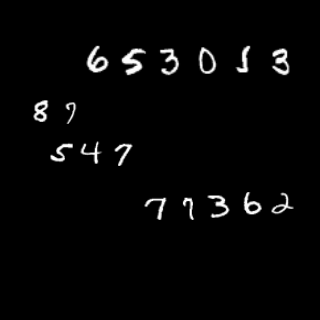 653013
87
547
77362